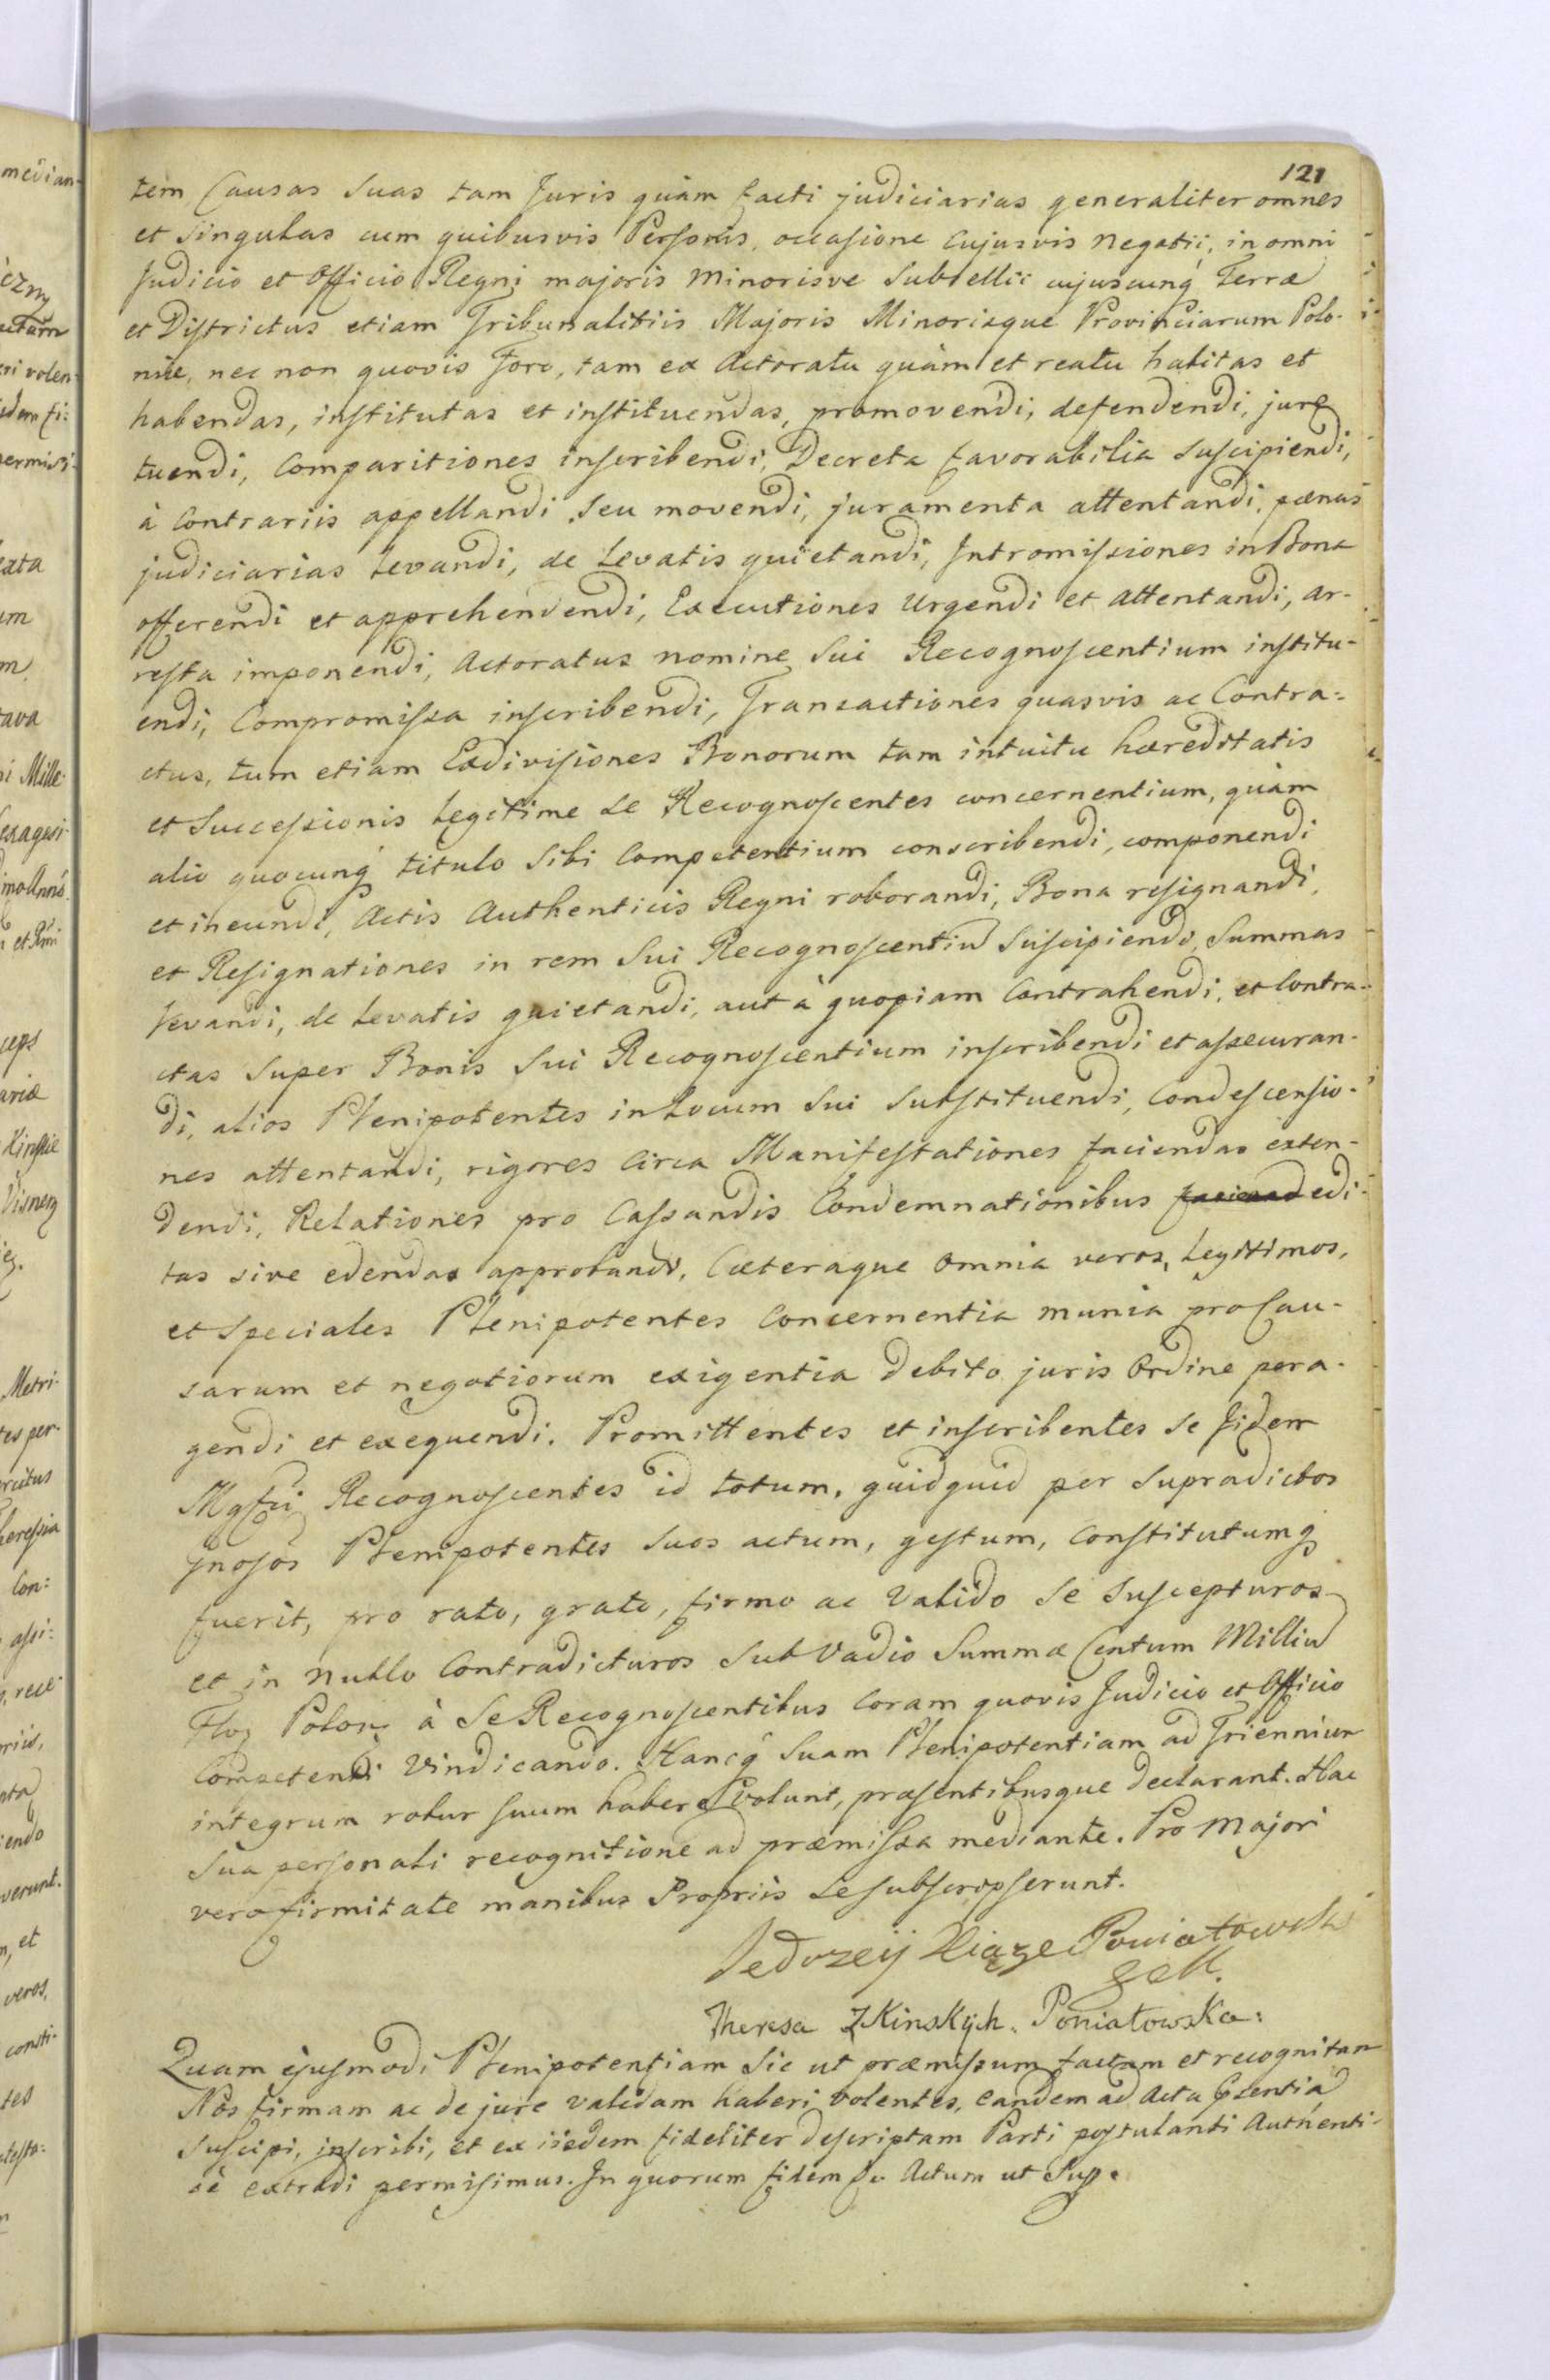 121
tem Causas Suas tam Juris quàm facti judiciarias generaliter omnes
et Singulas cum quibusvis Personis, occasione Cujusvis Negotii, in omni
Judicio et Officio Regni majoris Minorisve Subsellii cujuscunq́ Terræ
et Districtus etiam Tribunalitiis Majoris Minorisque Provinciarum Polo-
niæ, nec non quovis Foro, tam ex Actoratu quàm et reatu habitas et
habendas, institutas et instituendas, promovendi, defendendi, jure
tuendi, Comparitiones inscribendi, Decreta favorabilia Suscipiendi,
à Contrariis appellandi Seu movendi, juramenta attentandi, pænas
judiciarias Levandi, de Levatis quietandi, Intromissiones in Bona
offerendi et apprehendendi, Executiones Urgendi et attentandi, ar-
resta imponendi, Actoratus nomine Sui Recognoscentium institu-
endi, Compromissa inscribendi, Transactiones quasvis ac Contra-
ctus, tum etiam Exdivisiones Bonorum tam intuitu hæreditatis
et Successionis Legitime Se Recognoscentes concernentium, quàm
alio quocunq́ titulo Sibi Competentium conscribendi, componendi
et ineundi, Actis Authenticis Regni roborandi, Bona resignandi,
et Resignationes in rem Sui Recognoscentiū Suscipiendi, Summas
Levandi, de Levatis quietandi, aut à quopiam Contrahendi, et Contra-
ctas Super Bonis Sui Recognoscentium inscribendi et assecuran-
di, alios Plenipotentes in Locum Sui Substituendi, Condescensio-
nes attentandi, rigores Circa Manifestationes faciendas exten-
dendi, Relationes pro Cassandis Condemnationibus faciend edi-
tas sive edendas approbandi, Cæteraque Omnia veros, Legitimos,
et Speciales Plenipotentes Concernentia munia pro Cau-
sarum et negotiorum exigentia Debito juris Ordine pera-
gendi et exequendi. Promittentes et inscribentes Se Jidem
Mgfci Recognoscentes id totum, quidquid per Supradictos
Gnosos Plenipotentes Suos actum, gestum, Constitutumq́
fuerit, pro rato, grato, firmo ac Valido Se Suscepturos
et in Nullo Contradicturos Sub Vadio Summæ Centum Milliū
Flor Polon à Se Recognoscentibus Coram quovis Judicio et Officio
Competenti Vindicando. Hancq́ Suam Plenipotentiam ad Triennium
integrum robur Suum habere volunt, præsentibusque declarant. Hac
Sua personali recognitione ad præmissa mediante. Pro Majori
vero firmitate manibus Propriis Se subscripserunt.
Jedrzeij Xiąze Poniatowski
Theresa Z Kinskych. Poniatowska.
Quam ejusmodi Plenipotentiam Sic ut præmissum factam et recognitam
Nos firmam ac de jure validam haberi volentes, eandem ad Acta Psentia
Suscipi, inscribi, et ex iisdem fideliter descriptam Parti postulanti Authenti-
cè extradi permisimus. In quorum fidem Actum ut Sup.